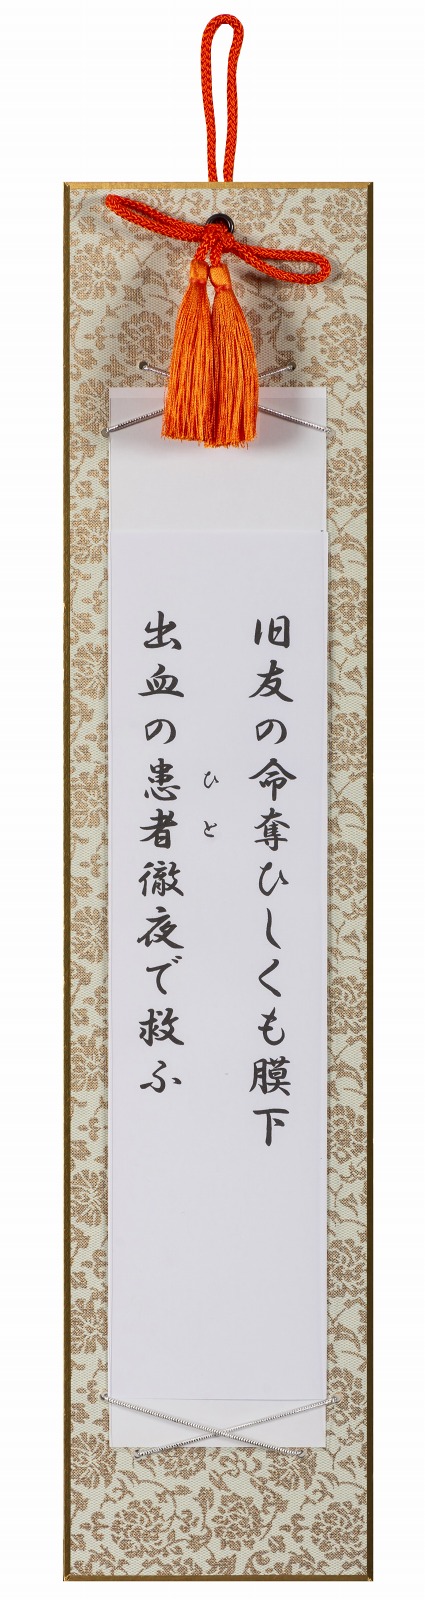 旧友の命奪ひしくも膜下
ひと
出血の患者徹夜で救ふ